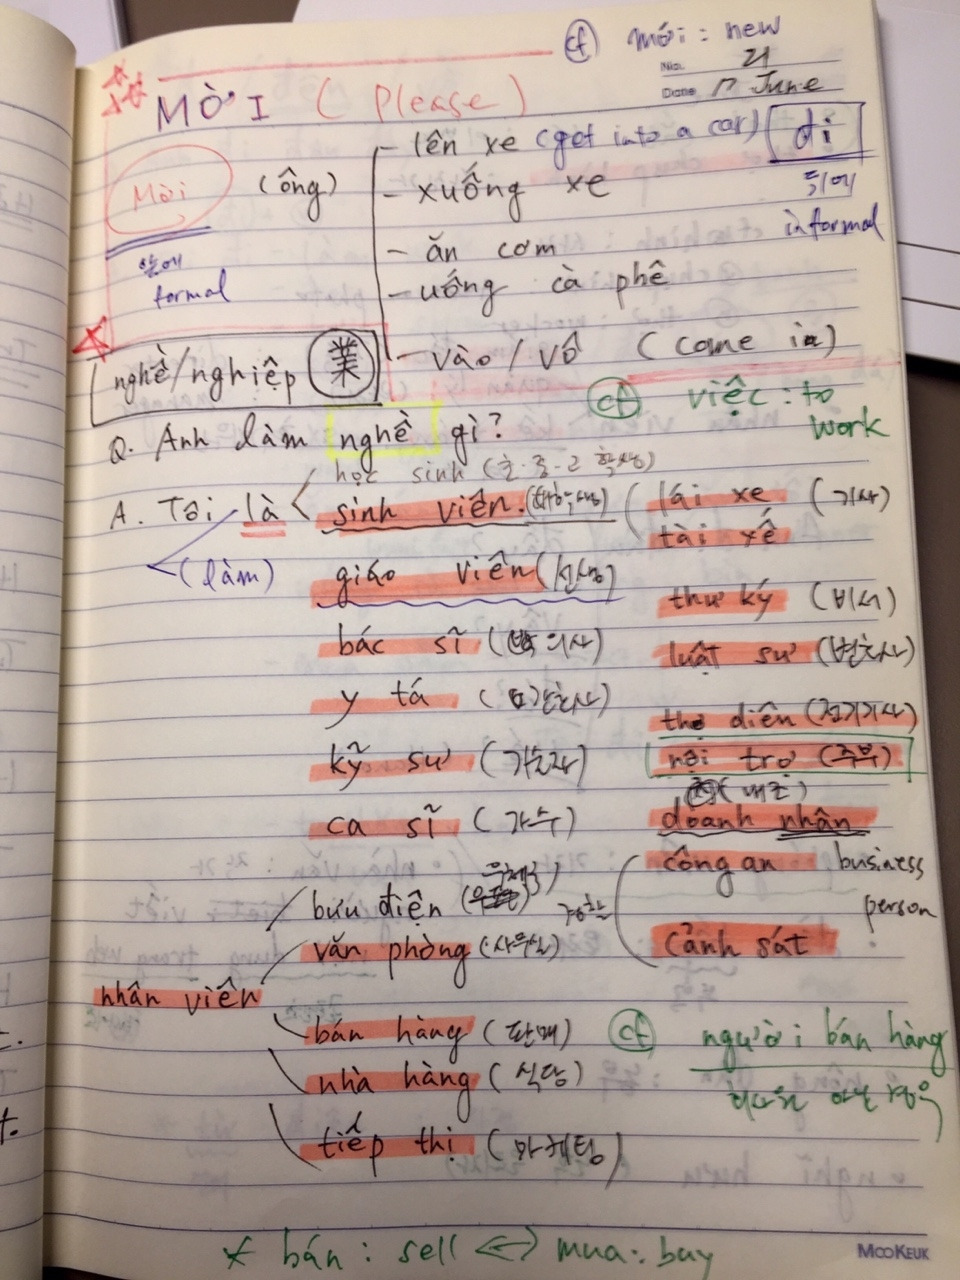 cf mới : new
No. 21
Date 17 June
MỜI ( please )
Mời (ông)
앞에
formal
- lên xe (get into a car) đi
- xuống xe
뒤에
informal
- ăn cơm
- uống cà phê
- vào / vô (come in)
nghề/nghiệp 業
cf việc : to work
Q. Anh làm nghề gì?
học sinh (초·중·고 학생)
A. Tôi là sinh viên.
(làm)
giáo viên (선생)
bác sĩ (의사)
y tá (간호사)
kỹ sư (기술자)
ca sĩ (가수)
lái xe (기사)
tài xế
thư ký (비서)
luật sư (변호사)
thợ điện (전기기사)
nội trợ (주부)
doanh nhân
business person
công an
cảnh sát
경찰
nhân viên
bưu điện (우체국)
văn phòng (사무실)
bán hàng (판매)
nhà hàng (식당)
tiếp thị (마케팅)
cf người bán hàng
* bán : sell <-> mua : buy
MOOKEUK